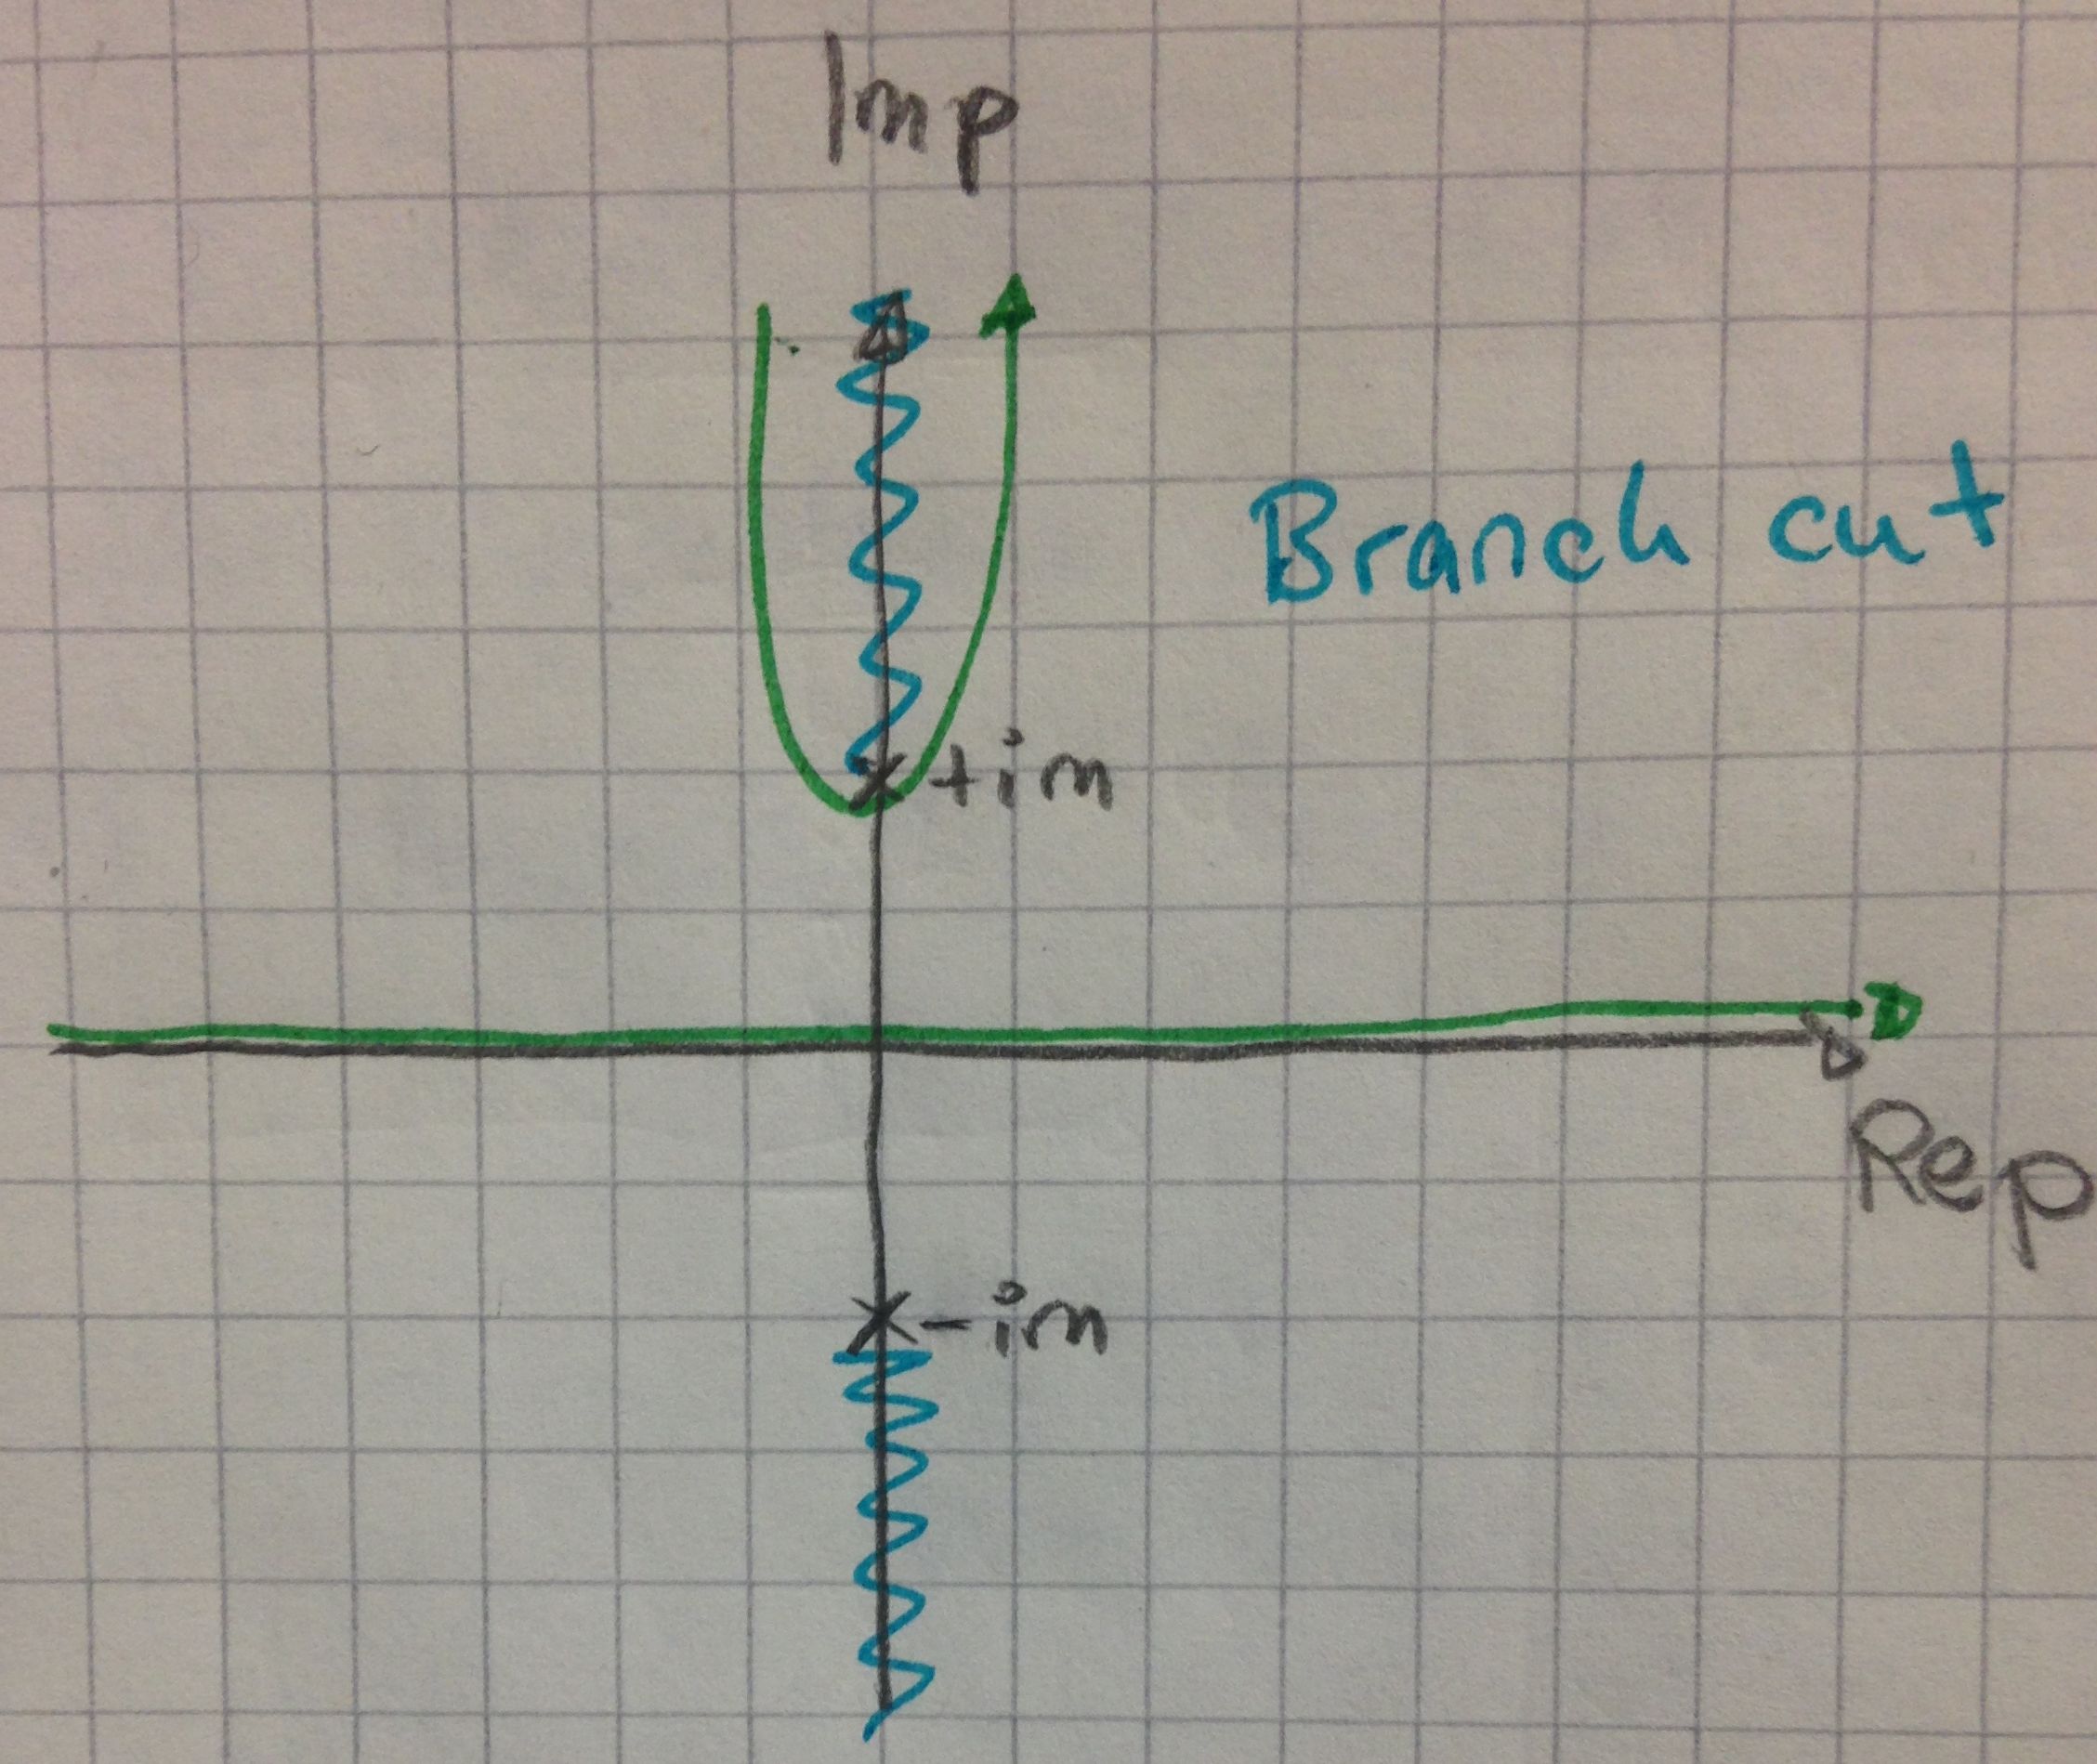 Imp
Branch cut
+im
Rep
-im